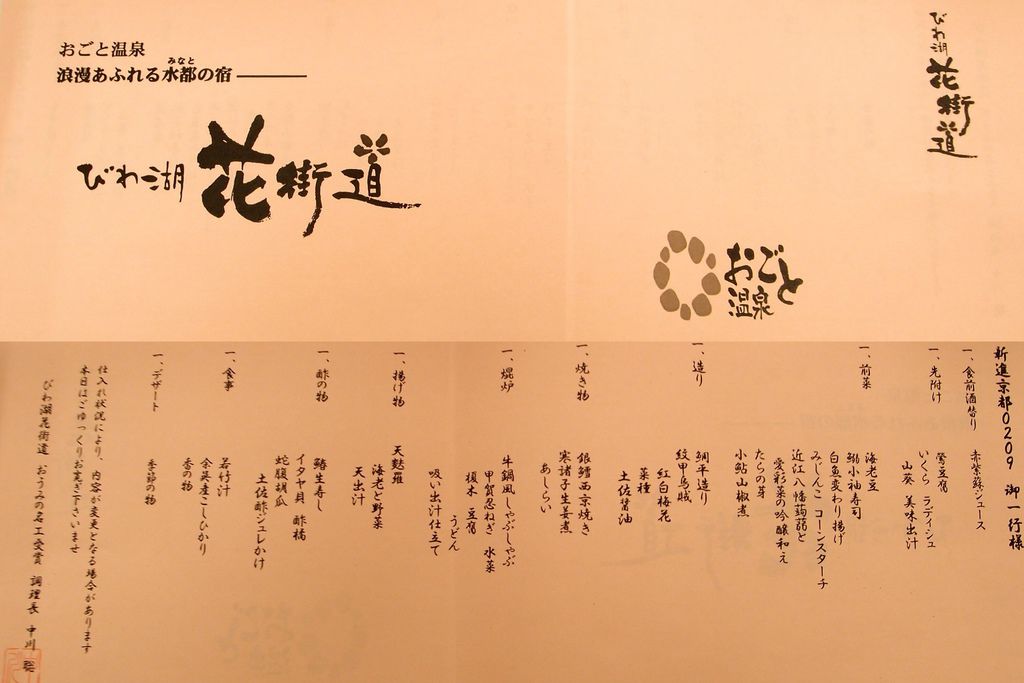 おごと温泉
浪漫あふれる水都の宿
みなと
びわ湖 花街道
びわ湖 花街道
おごと温泉
新進京都0209 御一行様
一、食前酒替り 赤紫蘇ジュース
一、先附け 鶯豆腐
いくら ラディシュ
山葵 美味出汁
一、前菜 海老豆
鰯小袖寿司
白魚変わり揚げ
みじんこ コーンスターチ
近江八幡蒟蒻と
愛彩菜の吟醸和え
たらの芽
小鮎山椒煮
一、造り 鯛平造り
紋甲烏賊
紅白梅花
菜種
土佐醤油
一、焼き物 銀鱈西京焼き
寒諸子生姜煮
あしらい
一、焜炉 牛鍋風しゃぶしゃぶ
甲賀忍ねぎ 水菜
榎木 豆腐
うどん
吸い出汁仕立て
一、揚げ物 天麩羅
海老と野菜
天出汁
一、酢の物 鰆生寿し
イタヤ貝 酢橘
蛇腹胡瓜
土佐酢ジュレかけ
一、食事 若竹汁
余呉産こしひかり
香の物
一、デザート 季節の物
仕入れ状況により、内容が変更となる場合があります
本日はごゆっくりお寛ぎ下さいませ
びわ湖花街道 おうみの名工受賞 調理長 中川 聡